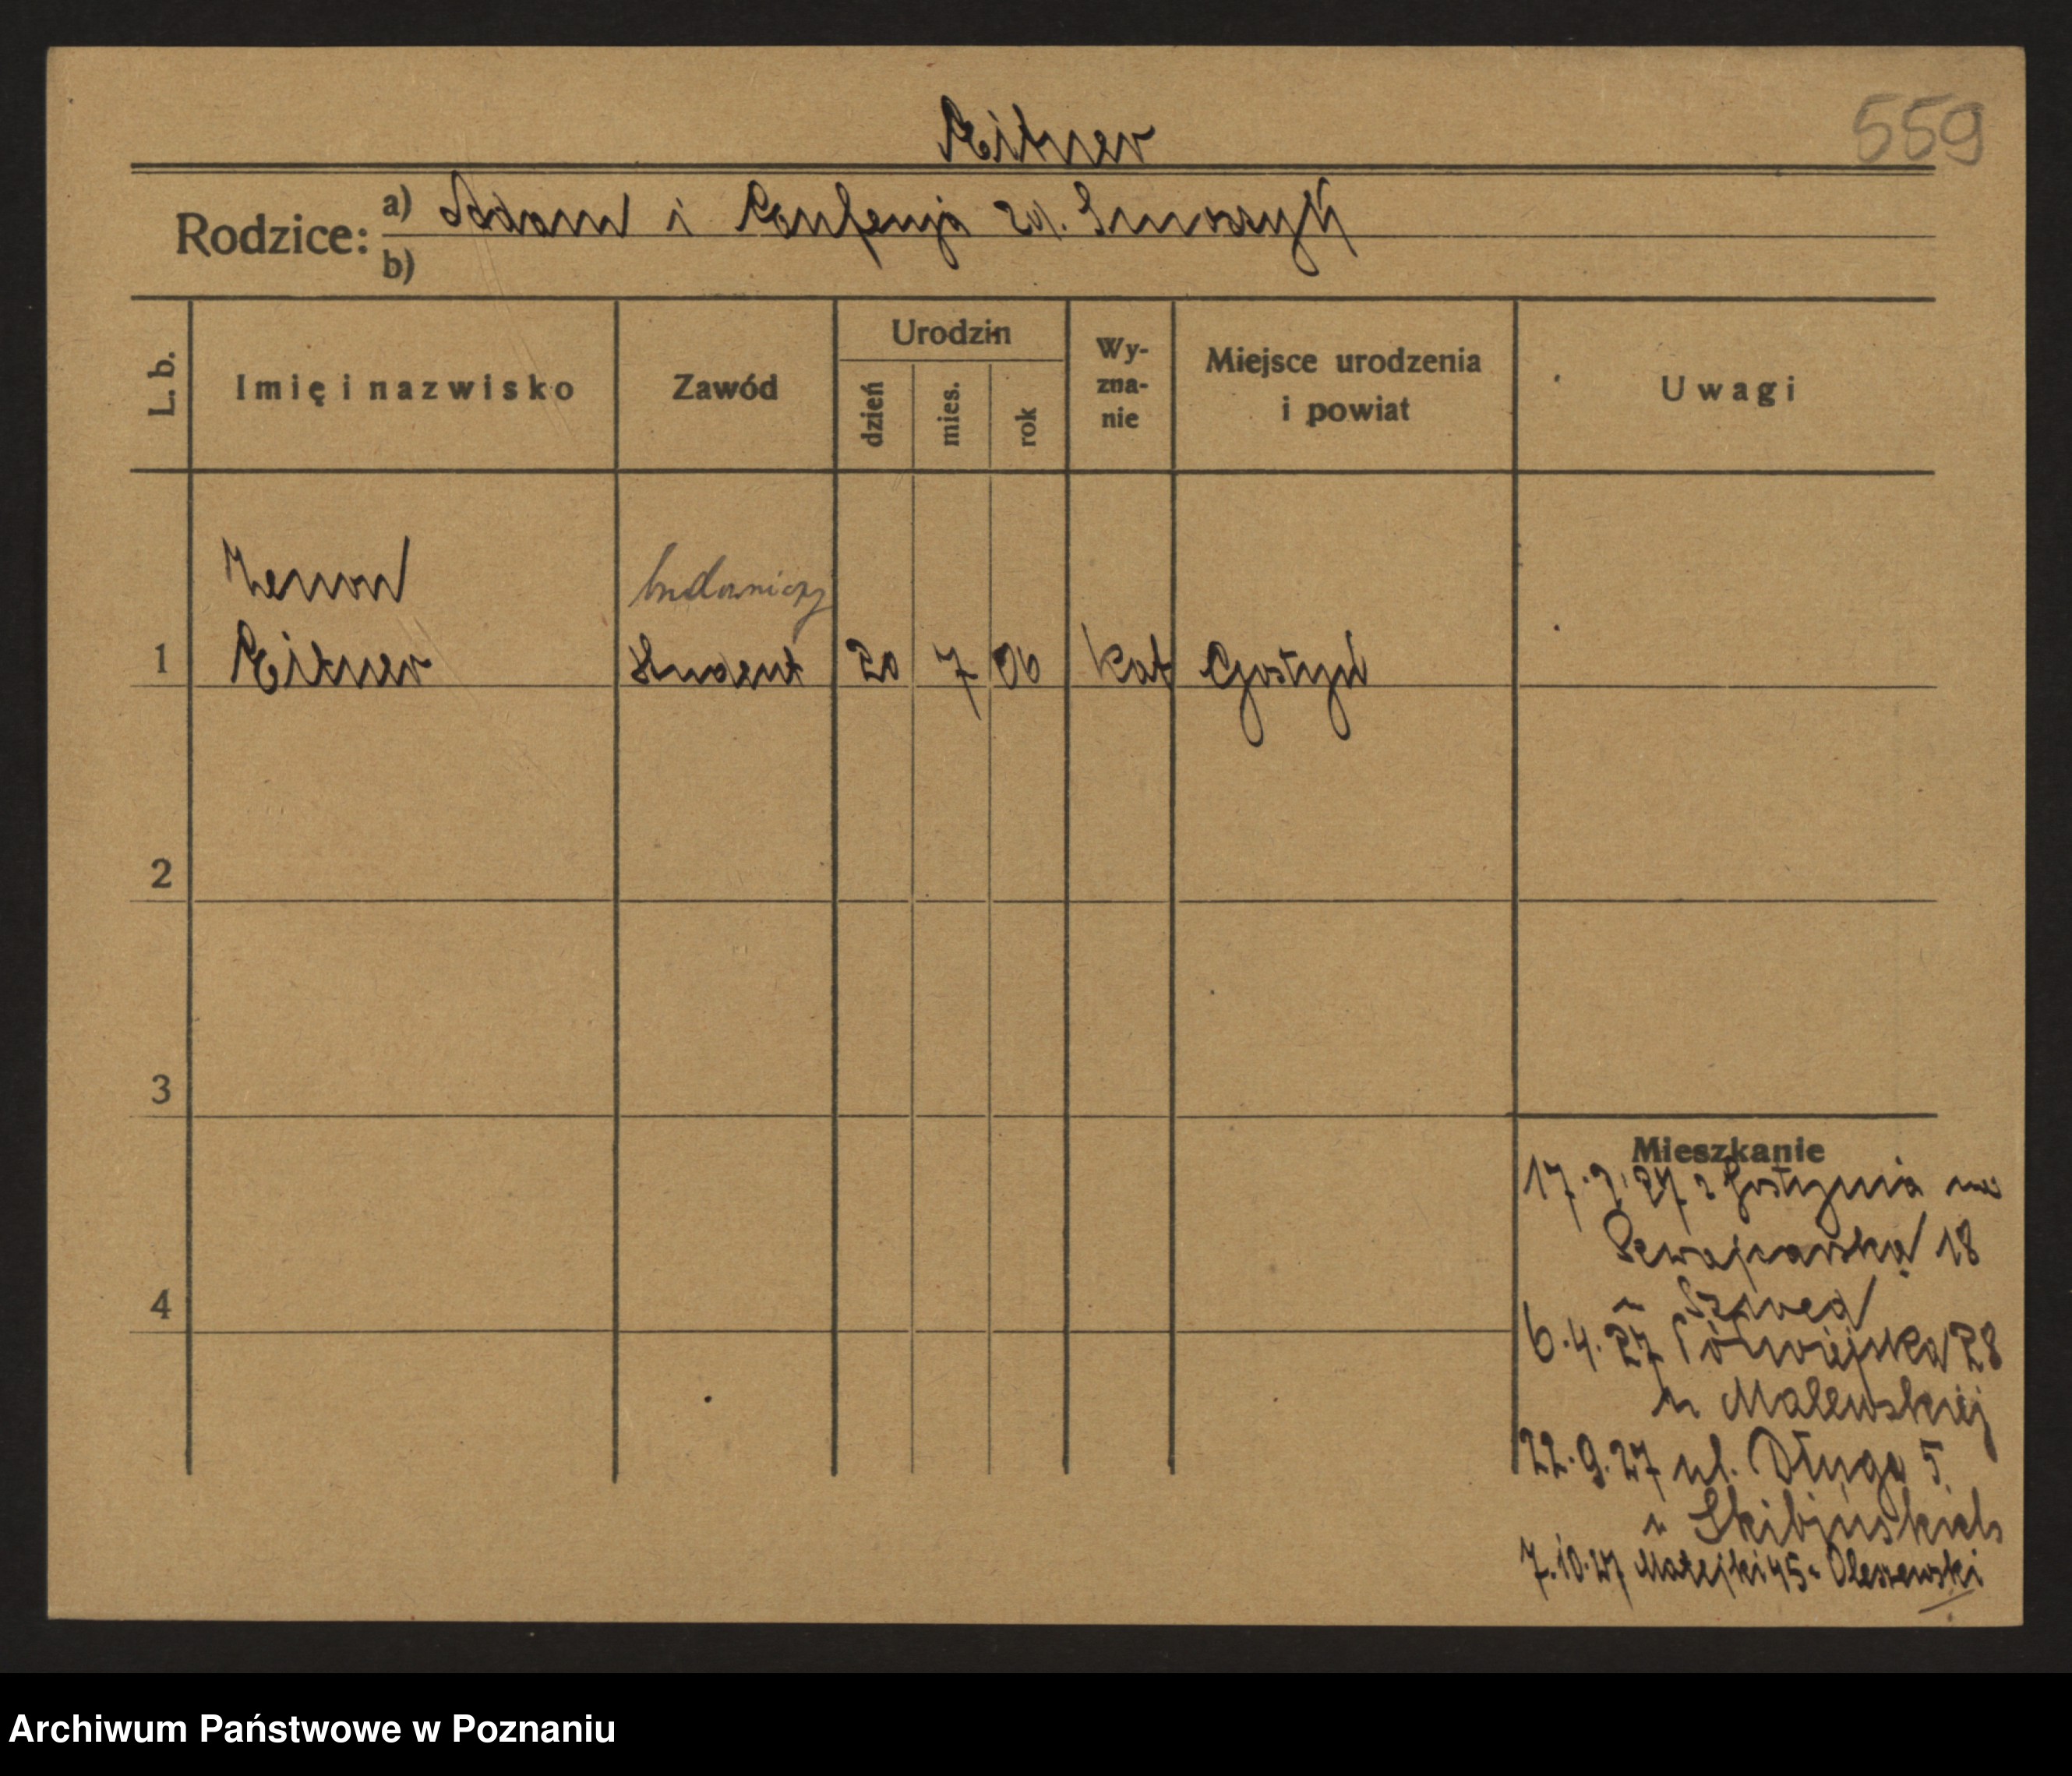 Ritner
559
Rodzice: a) Adam i
b)
L. b.
Imię i nazwisko
Zawód
Urodzin
dzień
mies.
rok
Wy-
zna-
nie
Miejsce urodzenia
i powiat
Uwagi
Zenon
budowniczy
1 Ritner Student 20 7 06 kat Gostyń
2
3
4
Mieszkanie
17. 27 z Gostynia na
18
u Szwed
6.4.27 Półwiejska 28
u Malewskiej
22.9.27 ul. Długa 5
u Skibińskich
7.10.27 Matejki 45 u Olszewski
Archiwum Państwowe w Poznaniu